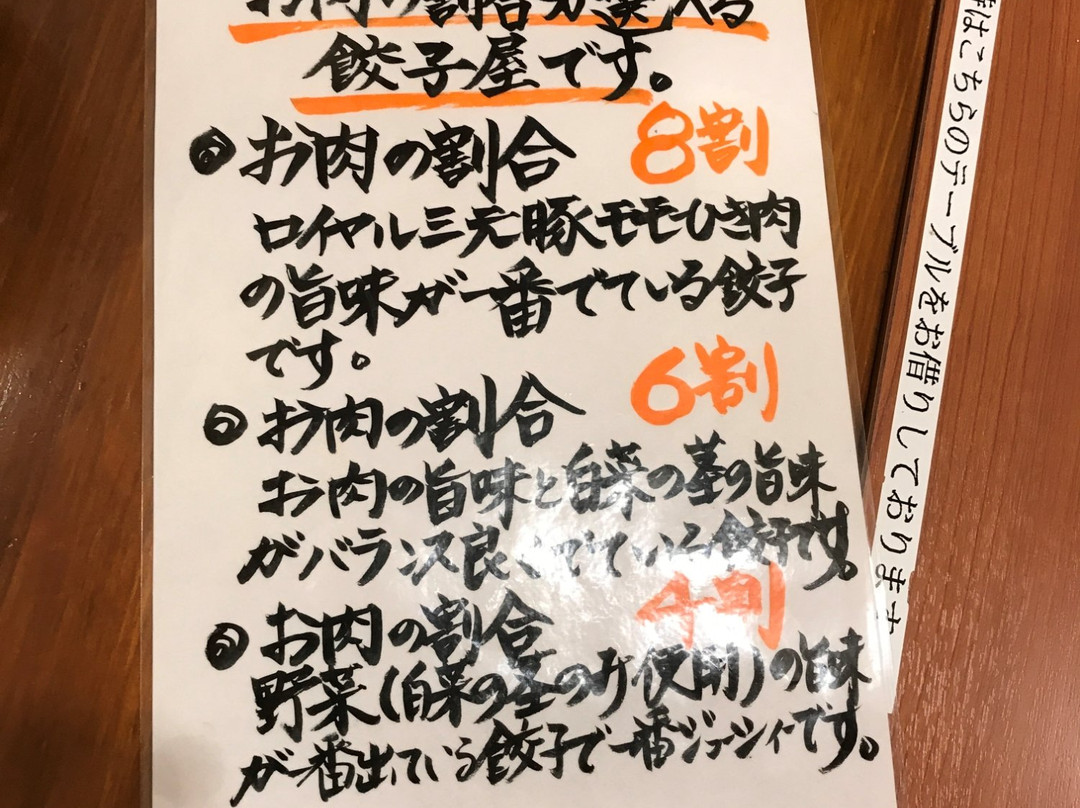 お肉の割合が選べる
餃子屋です。
お肉の割合 8割
ロイヤル三元豚モモひき肉
の旨味が一番でている餃子
です。
お肉の割合 6割
お肉の旨味と白菜の茎の旨味
がバランス良くでている餃子です。
お肉の割合 4割
野菜(白菜の茎のみ使用)の旨味
が一番出ている餃子で一番ジューシィーです。
はこちらのテーブルをお借りしております